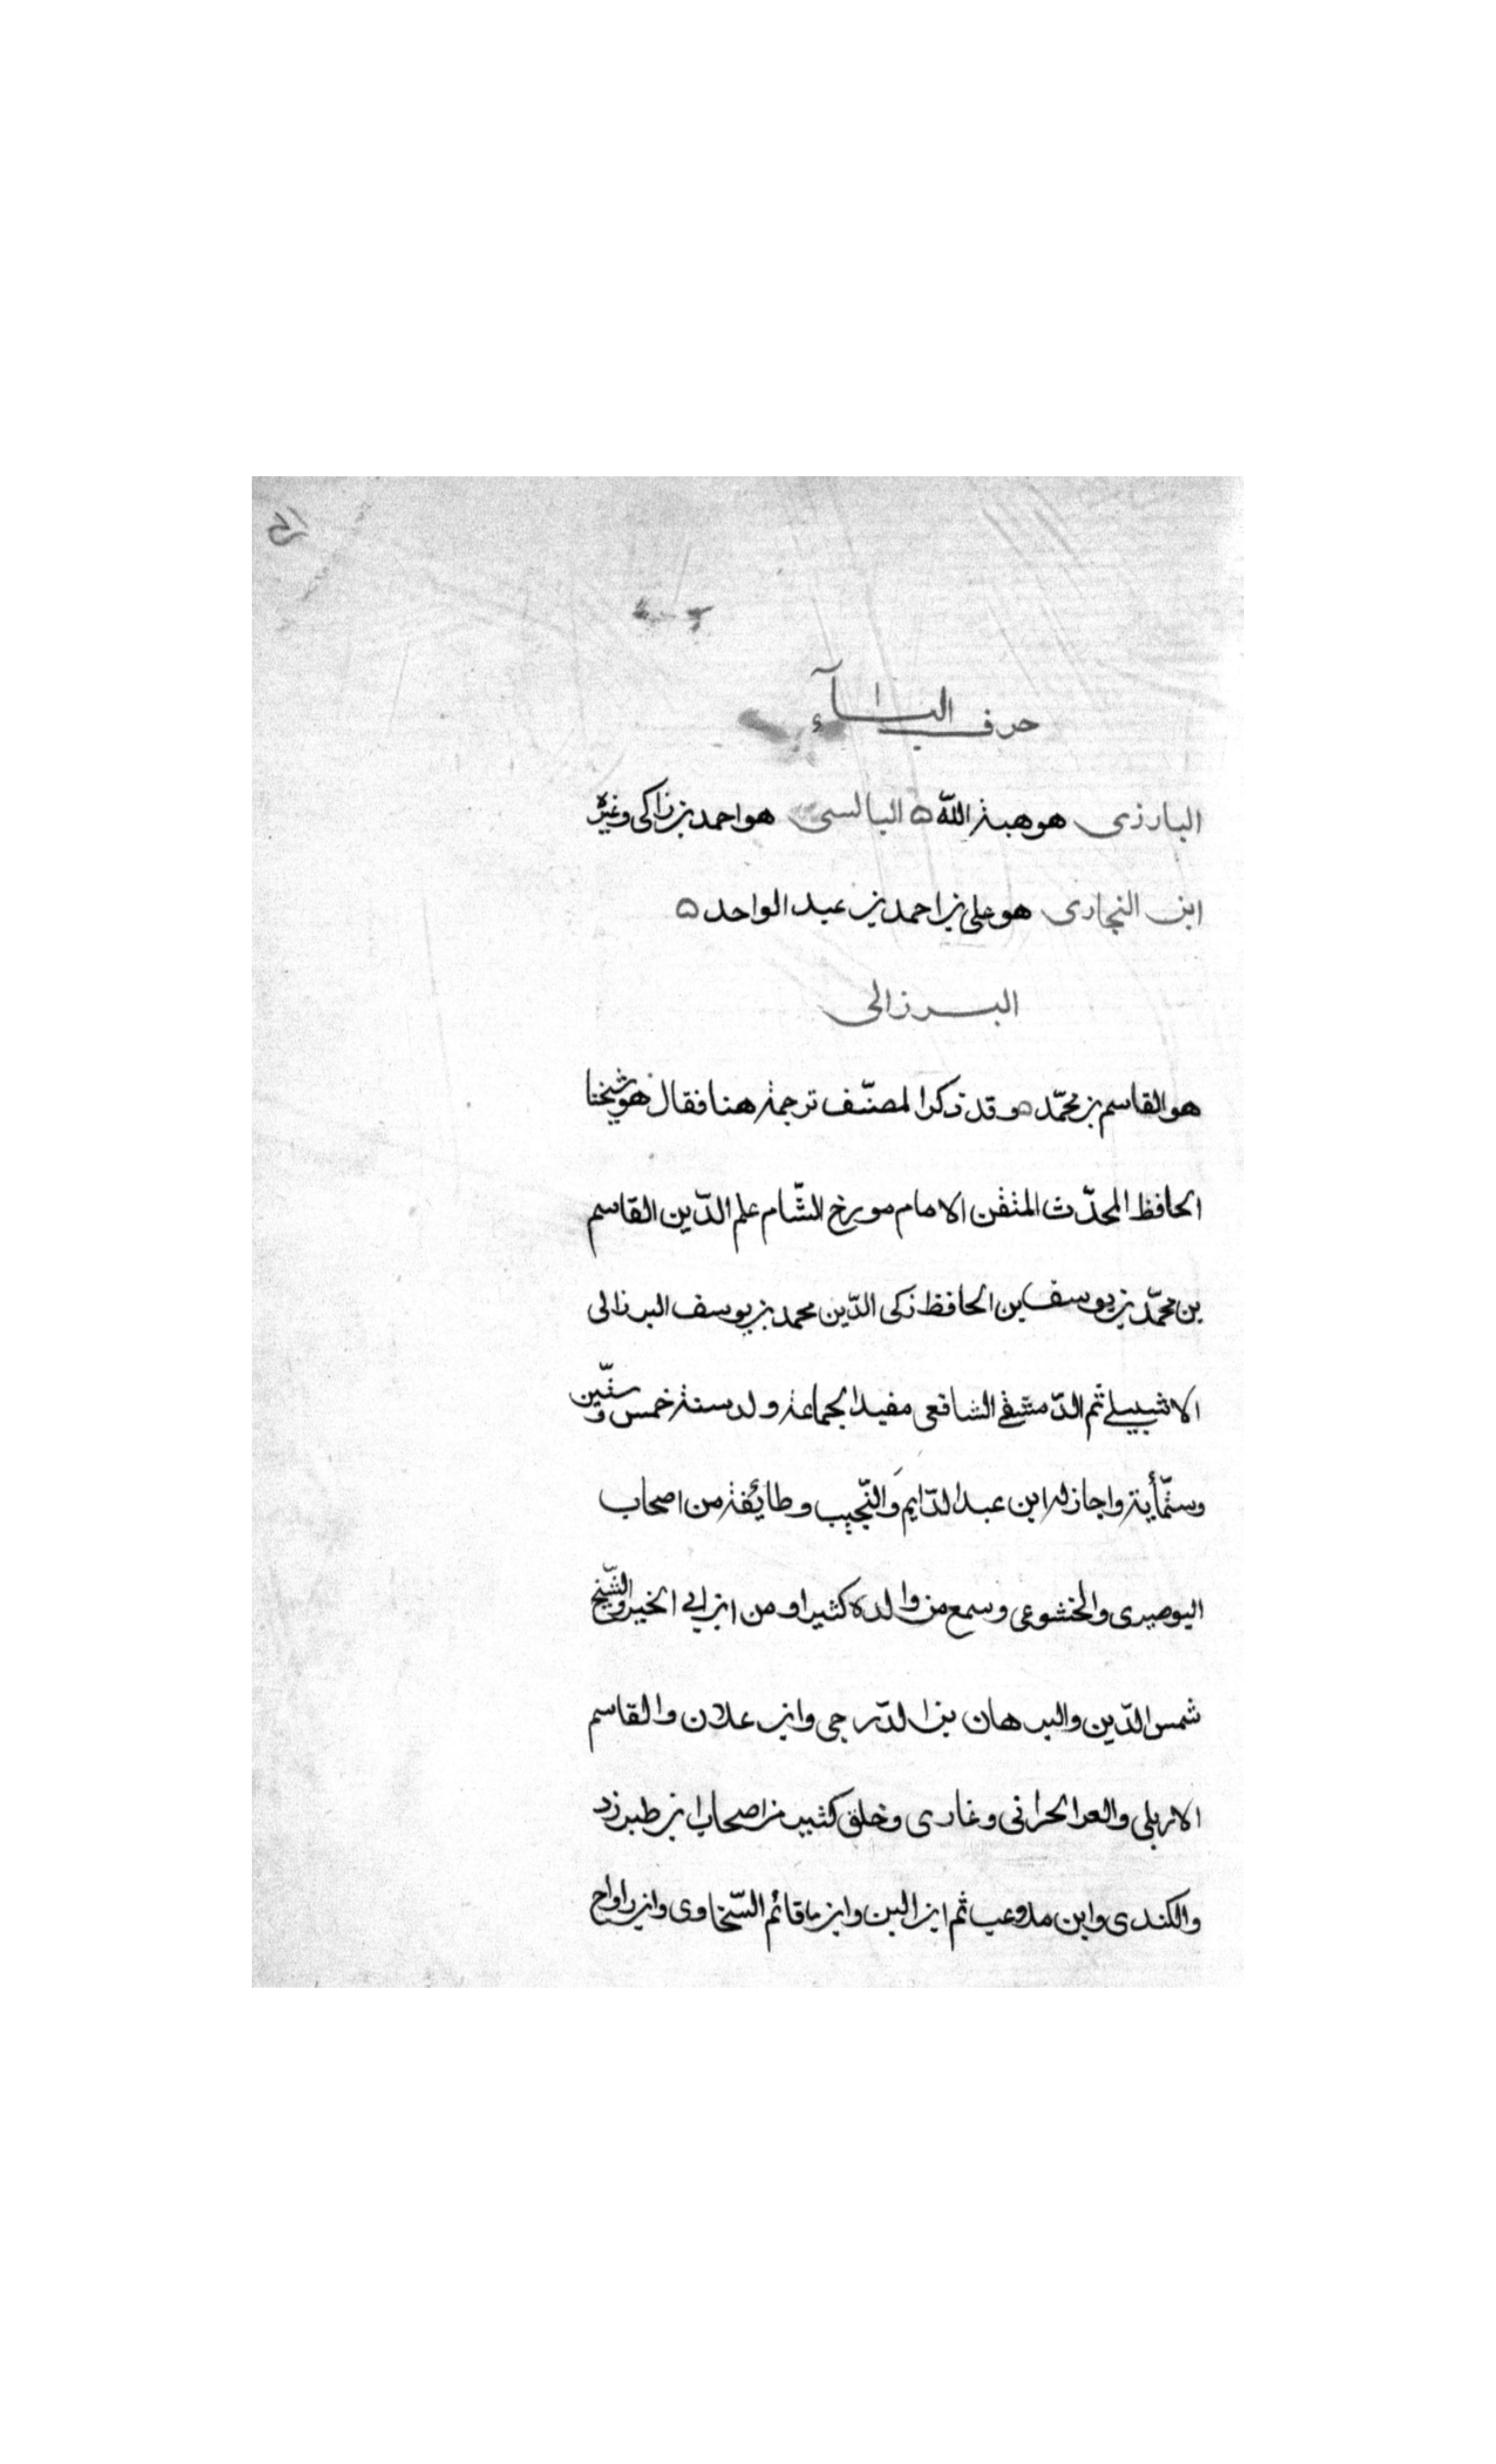 حرف البآء
البارزى هو هبة الله ه البالسى هو احمد بن زاكى وغيره
ابن النجارى هو على بن احمد بن عبد الواحد ه
البرزالى
هو القاسم بن محمّد ه وقد ذكر المصنّف ترجمة هنا فقال هو شيخنا
الحافظ المحدّث المتقن الامام مورخ الشّام علم الدّين القاسم
بن محمّد بن يوسف بن الحافظ زكى الدّين محمد بن يوسف البرزالى
الاشبيلے ثم الدّمشقے الشافعى مفيد الجماعة ولد سنة خمس وستّين
وستّمأية واجاز له ابن عبد الدّايم والنّجيب وطائفة من اصحاب
البوصيرى والخشوعى وسمع من والده كثيرا ومن ابن ابى الخير والشّيخ
شمس الدّين والبرهان بن الدّرجى وابن علان والقاسم
الاربلى والعز الحرانى وغازى وخلق كثير من اصحاب ابن طبرزد
والكندى وابن ثم ابن البن وابن السّخاوى وابن رواح